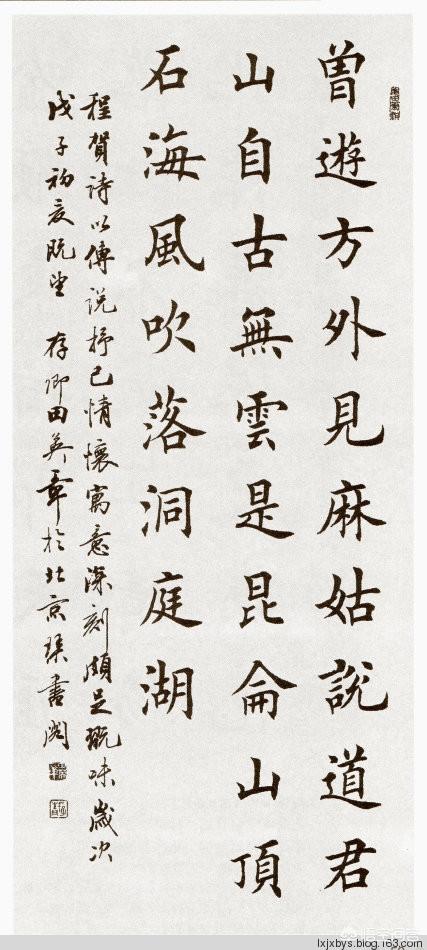 曾遊方外見麻姑說道君
山自古無雲是昆侖山頂
石海風吹落洞庭湖
程賀詩以傳說抒己情懷寓意深刻頗足翫味歲次
戊子初夏既望 存卿田英章於北京書閣
悟空问答
lxjxbys.blog.163.com